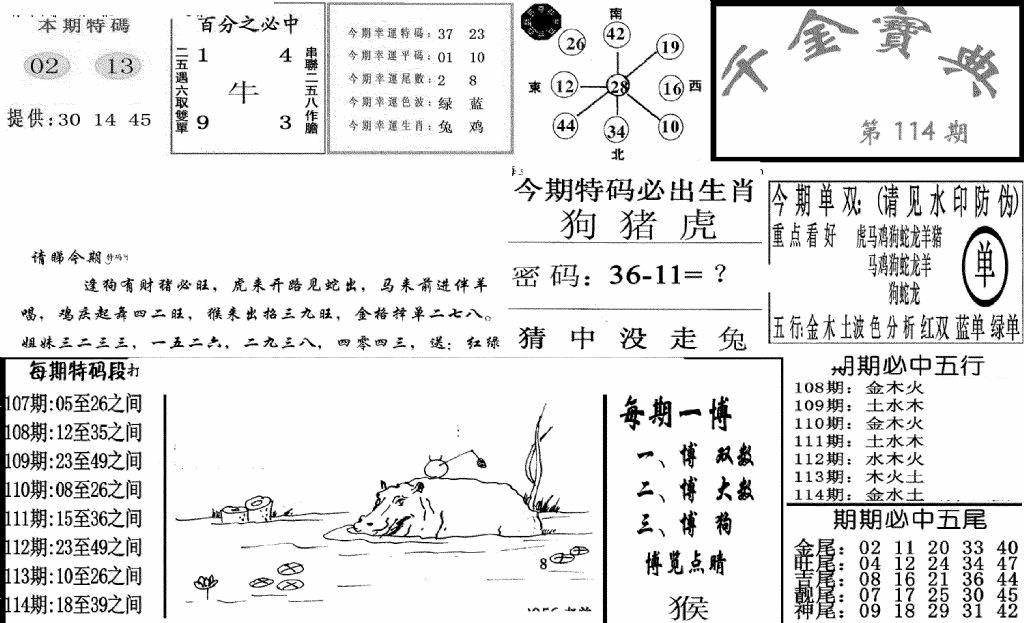 本期特碼
02 13
提供:30 14 45
百分之必中
二五遇六取雙單
1 4
牛
9 3
串聯二五八作膽
今期幸運特碼: 37 23
今期幸運平碼: 01 10
今期幸運尾數: 2 8
今期幸運色波: 绿 蓝
今期幸運生肖: 兔 鸡
南
42
26 19
東 12 28 16 西
44 34 10
北
金寶典
第114期
请睇今期
逢狗有财猪必旺，虎来开路见蛇出，马来前进伴羊
唱，鸡庆起舞四二旺，猴来出招三九旺，金格择单二七八。
姐妹三二三三，一五二六，二九三八，四零四三，送：红绿
今期特码必出生肖
狗 猪 虎
密码：36-11=？
猜 中 没 走 兔
今期单双:(请见水印防伪)
重点看好 虎马鸡狗蛇龙羊猪
马鸡狗蛇龙羊
狗蛇龙
单
五行:金木土波色分析红双蓝单绿单
每期特码段打
107期:05至26之间
108期:12至35之间
109期:23至49之间
110期:08至26之间
111期:15至36之间
112期:23至49之间
113期:10至26之间
114期:18至39之间
8
每期一博
一、博 双数
二、博 大数
三、博 狗
博览点睛
猴
期期必中五行
108期：金木火
109期：土水木
110期：金木火
111期：土水木
112期：水木火
113期：木火土
114期：金水土
期期必中五尾
金尾：02 11 20 33 40
旺尾：04 12 24 34 47
吉尾：08 16 21 36 44
靓尾：07 17 25 30 45
神尾：09 18 29 31 42